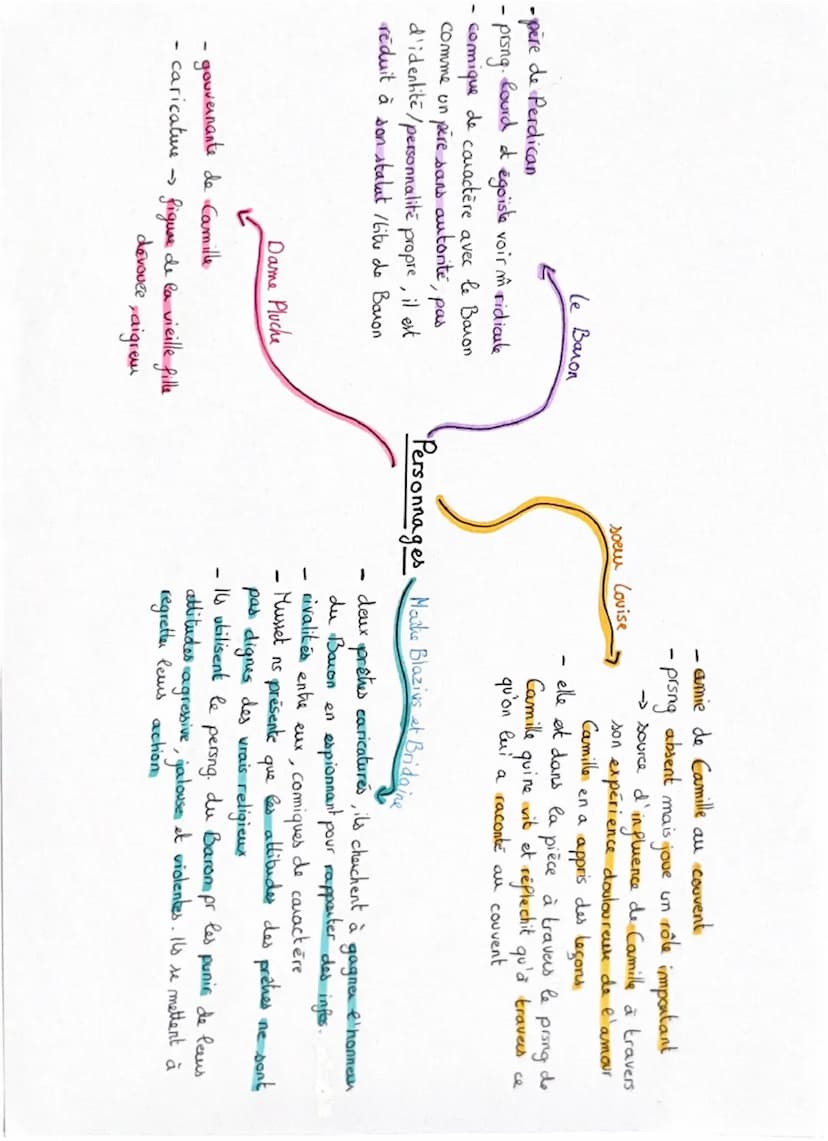 Personnages
Le Baron
- père de Perdican
- prsng. lourd et égoïste voir m̂ ridicule
- comique de caractère avec le Baron
comme un père sans autorité, pas
d'identité/personnalité propre, il est
réduit à son statut /titre de Baron
Dame Pluche
- gouvernante de Camille
- caricature → figure de la vieille fille
dévouée, aigreur
soeur Louise
- amie de Camille au couvent
- prsng absent mais joue un rôle important
→ source d'influence de Camille à travers
son expérience douloureuse de l'amour
Camille en a appris des leçons
- elle et dans la pièce à travers le prsng de
Camille qui ne vit et réflechit qu'à travers ce
qu'on lui a raconté au couvent
Blazius et Bridaine
- deux prêtres caricaturés, ils cherchent à gagner l'honneur
du Baron en espionnant pour rapporter des infos.
- rivalités entre eux, comiques de caractère
- Musset ns présente que les attitudes des prêtres ne sont
pas dignes des vrais religieux
- Ils utilisent le persng. du Baron pr les punir de leurs
attitudes agressive, jalouse et violentes. Ils se mettent à
regretter leurs action